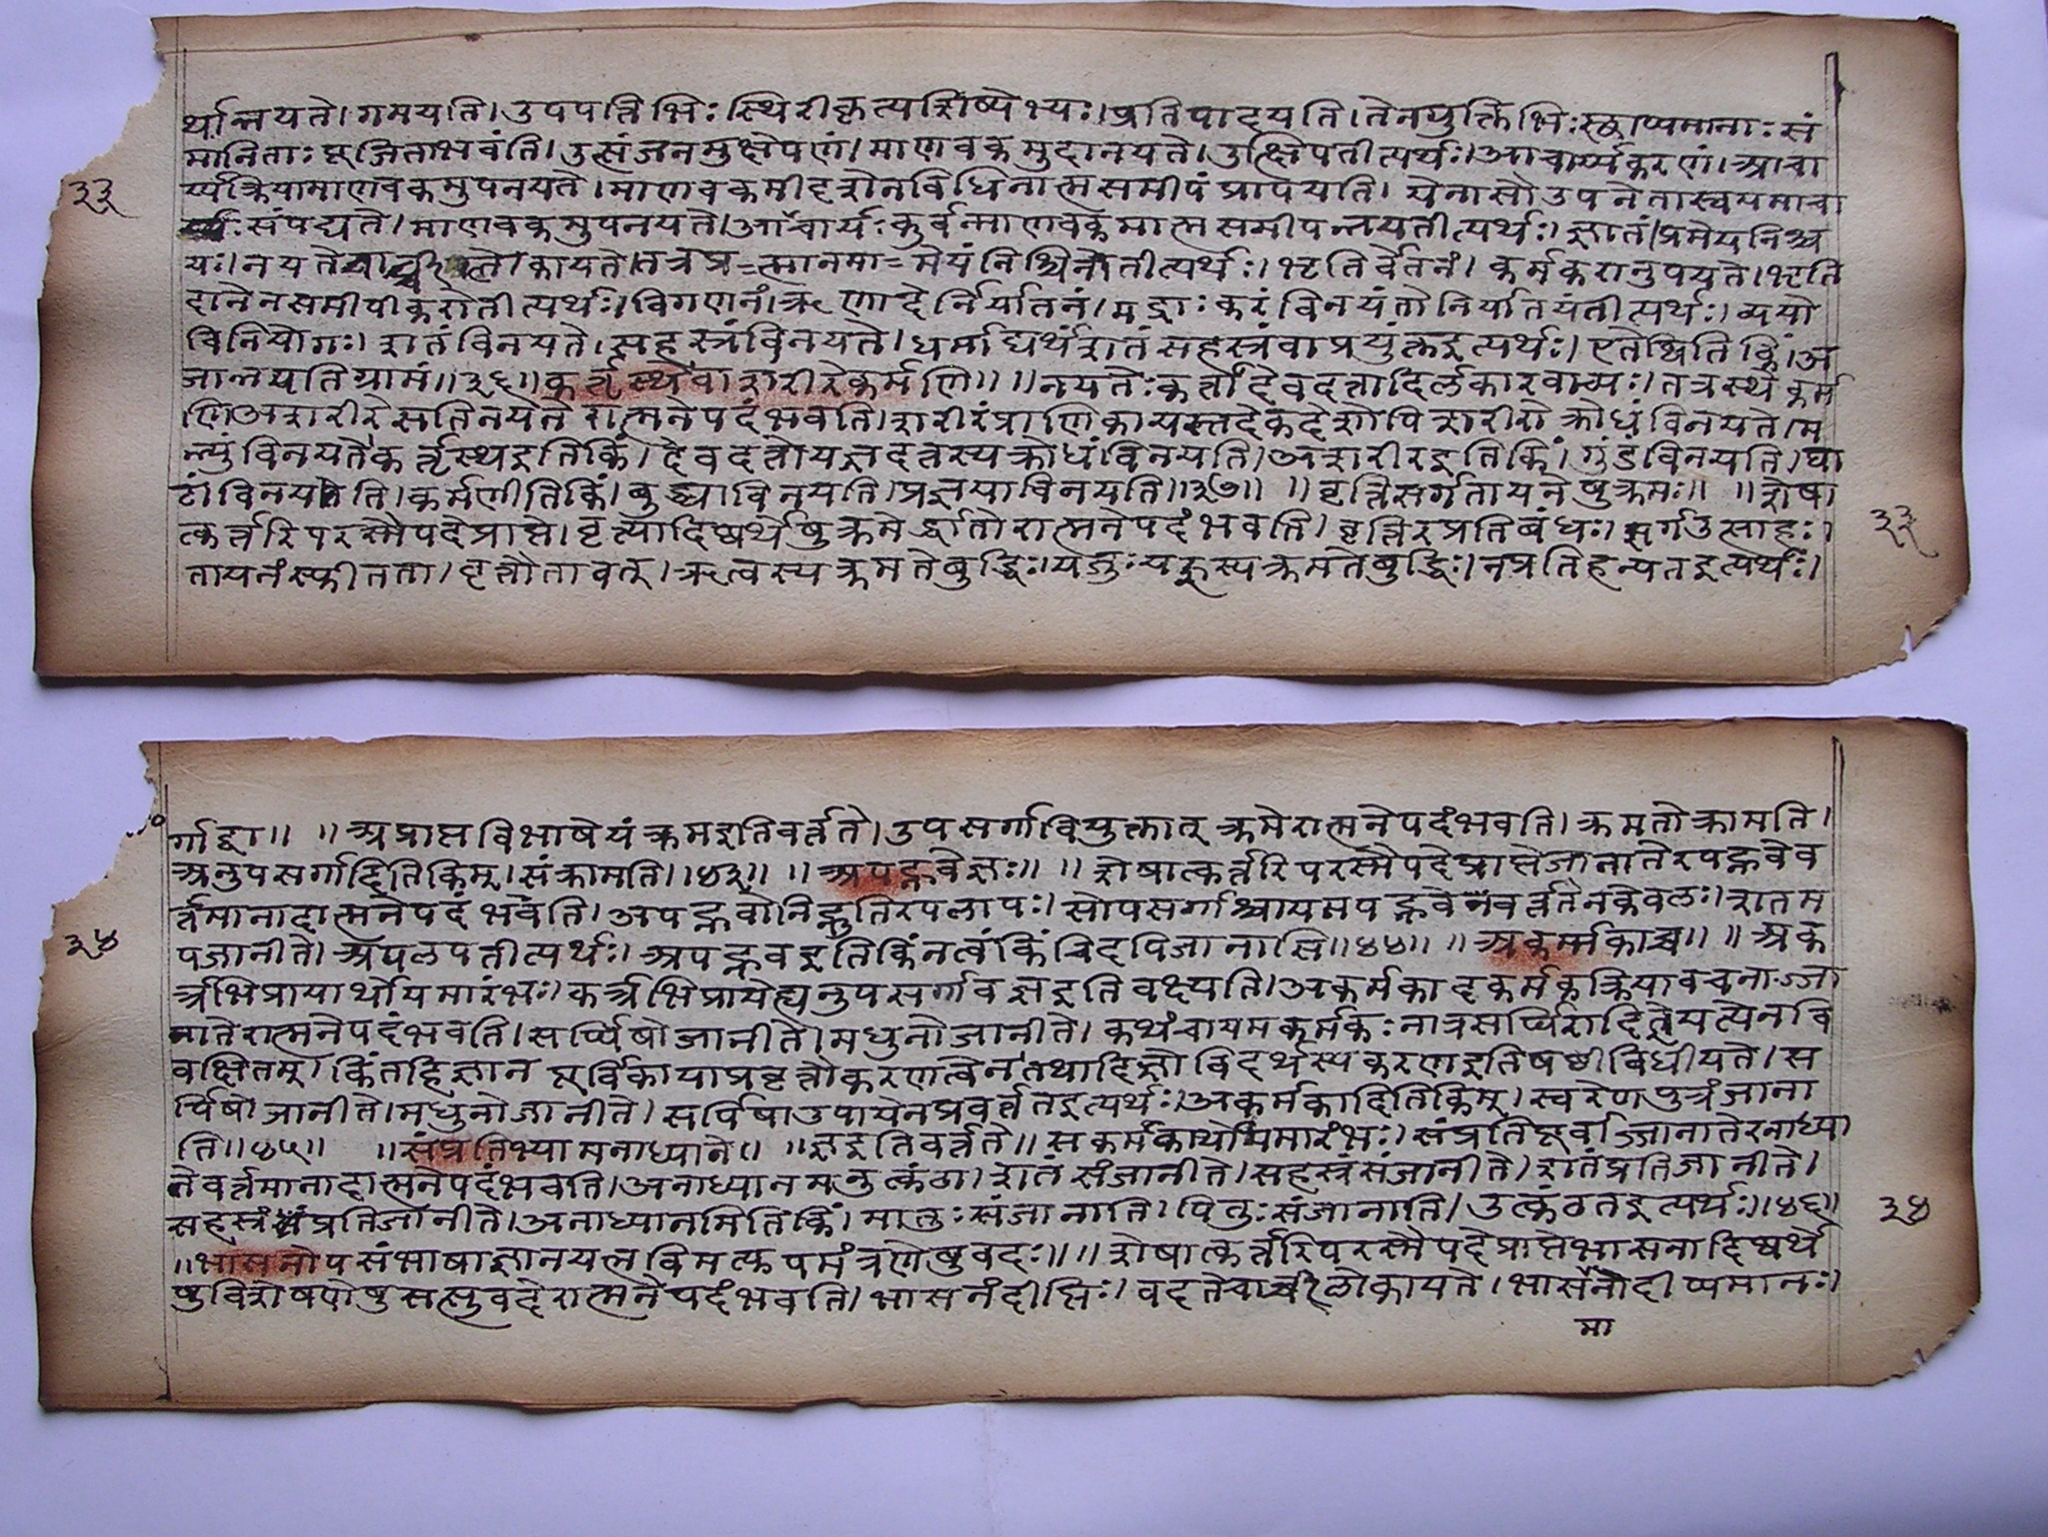 र्थान्नयते। गमयति। उपपत्तिभिः स्थिरीकृत्य शिष्येभ्यः। प्रतिपादयति। तेन युक्तिभिः स्छाप्यमानाः सं
मानिताः पूजिता भवंति। उत्संजनमुत्क्षेपणं। माणवकमुदानयते। उत्क्षिपतीत्यर्थः। आचार्य्यकरणं। आचा
३३
र्य्यक्रिया माणवकमुपनयते। माणवकमीदृशेन विधिनात्मसमीपं प्रापयति। येनासौ उपनेता स्वयमाचा
र्य्यः संपद्यते। माणवकमुपनयते। आचार्यः कुर्वन्माणवकमात्मसमीपन्नयतीत्यर्थः। ज्ञातं। प्रमेयनिश्च
यः। नयते चार्वी कायते। तत्र प्र=मेयं निश्चिनोतीत्यर्थः। भृतिर्वेतनं। कर्मकरानुपयते। भृति
दानेन समीपीकरोतीत्यर्थः। विगणनं। ऋणादेर्निर्यातनं। मद्राः करं विनयंते। निर्यातयंतीत्यर्थः। व्ययो
विनियोगः। शतं विनयते। सहस्त्रं विनयते। धर्माद्यर्थं शतं सहस्त्रं वा प्रयुंक्त इत्यर्थः। एतेष्विति किं। अ
जान्नयति ग्रामं॥३६॥ कर्तृस्थे वा शरीरे कर्मणि॥ ॥नयतेः कर्त्ता देवदत्तादिर्लकारवाच्यः। तत्रस्थे कर्म
णि अशरीरे सति नयतेरात्मनेपदं भवति। शरीरं प्राणिकायस्तदेकदेशोपि शरीरो क्रोधं विनयते। म
न्युं विनयते। कर्तृस्थ इति किं। देवदत्तो यज्ञदत्तस्य क्रोधं विनयति। अशरीर इति किं। गुंडं विनयति। घा
टां विनयति। कर्मणीति किं। बुद्ध्या विनयति। प्रज्ञया विनयति॥३७॥ ॥वृत्तिसर्गतायनेषु क्रमः॥ ॥शेषा
त्कर्त्तरि परस्मैपदे प्राप्ते। वृत्त्यादिष्वर्थेषु क्रमेर्द्धातोरात्मनेपदं भवति। वृत्तिरप्रतिबंधः। सर्ग उत्साहः।
३३
तायनं स्फीतता। वृत्तौ तावत्। ऋत्वस्य क्रमते बुद्धिः। यजुःष्वस्य क्रमते बुद्धिः। न प्रतिहन्यत इत्यर्थः।
र्गाद्वा॥ ॥अप्राप्तविभाषेयं क्रम इति वर्त्तते। उपसर्गवियुक्तात् क्रमेरात्मनेपदं भवति। क्रमते। क्रामति।
अनुपसर्गादिति किम्। संक्रामति॥४३॥ ॥अपह्नवे ज्ञः॥ ॥शेषात्कर्त्तरि परस्मैपदे प्राप्ते जानातेरपह्नवे व
र्त्तमानादात्मनेपदं भवति। अपह्नवो निह्नुतिरपलापः। सोपसर्गाश्चायमपह्नवे वर्त्तते न केवलः। शतम
३४
पजानीते। अपलपतीत्यर्थः। अपह्नव इति किं न त्वं किंचिदपि जानासि॥४४॥ ॥अकर्म्मकाच्च॥ ॥अक
र्त्रभिप्रायार्थोयमारंभः। कर्त्रभिप्राये ह्यनुपसर्गाद्वा ज्ञ इति वक्ष्यति। अकर्मकादकर्मकक्रियावचनाज्जा
नातेरात्मनेपदं भवति। सर्प्पिषो जानीते। मधुनो जानीते। कथं चायमकर्मकः नात्र सर्प्पिरादि ज्ञेयत्वेन वि
वक्षितम्। किं तर्हि ज्ञानपूर्विकाया प्रवृत्तौ करणत्वेन तथा हि ज्ञो विदर्थस्य करण इति षष्ठी विधीयते। स
र्प्पिषो जानीते। मधुनो जानीते। सर्पिषा उपायेन प्रवर्त्तत इत्यर्थः। अकर्मकादिति किम्। स्वरेण पुत्रं जाना
ति॥४५॥ ॥संप्रतिभ्यामनाध्याने॥ ॥ज्ञ इति वर्त्तते॥ सकर्मकार्थोयमारंभः। संप्रतिपूर्वाज्जानातेरनाध्या
ने वर्त्तमानादात्मनेपदं भवति। अनाध्यानमनुत्कंठा। शतं संजानीते। सहस्त्रं संजानीते। शतं प्रतिजानीते।
सहस्त्रं प्रतिजानीते। अनाध्यानमिति किं। मातुः संजानाति। पितुः संजानाति। उत्कंठत इत्यर्थः॥४६॥
३४
॥भासनोपसंभाषाज्ञानयत्नविमत्युपमंत्रणेषु वदः॥ ॥शेषात्कर्त्तरि परस्मैपदे प्राप्ते भासनादिष्वर्थे
षु विशेषणेषु सत्सु वदेरात्मनेपदं भवति। भासनं दीप्तिः। वदते चार्वी लोकायते। भासनो दीप्यमानः।
मा